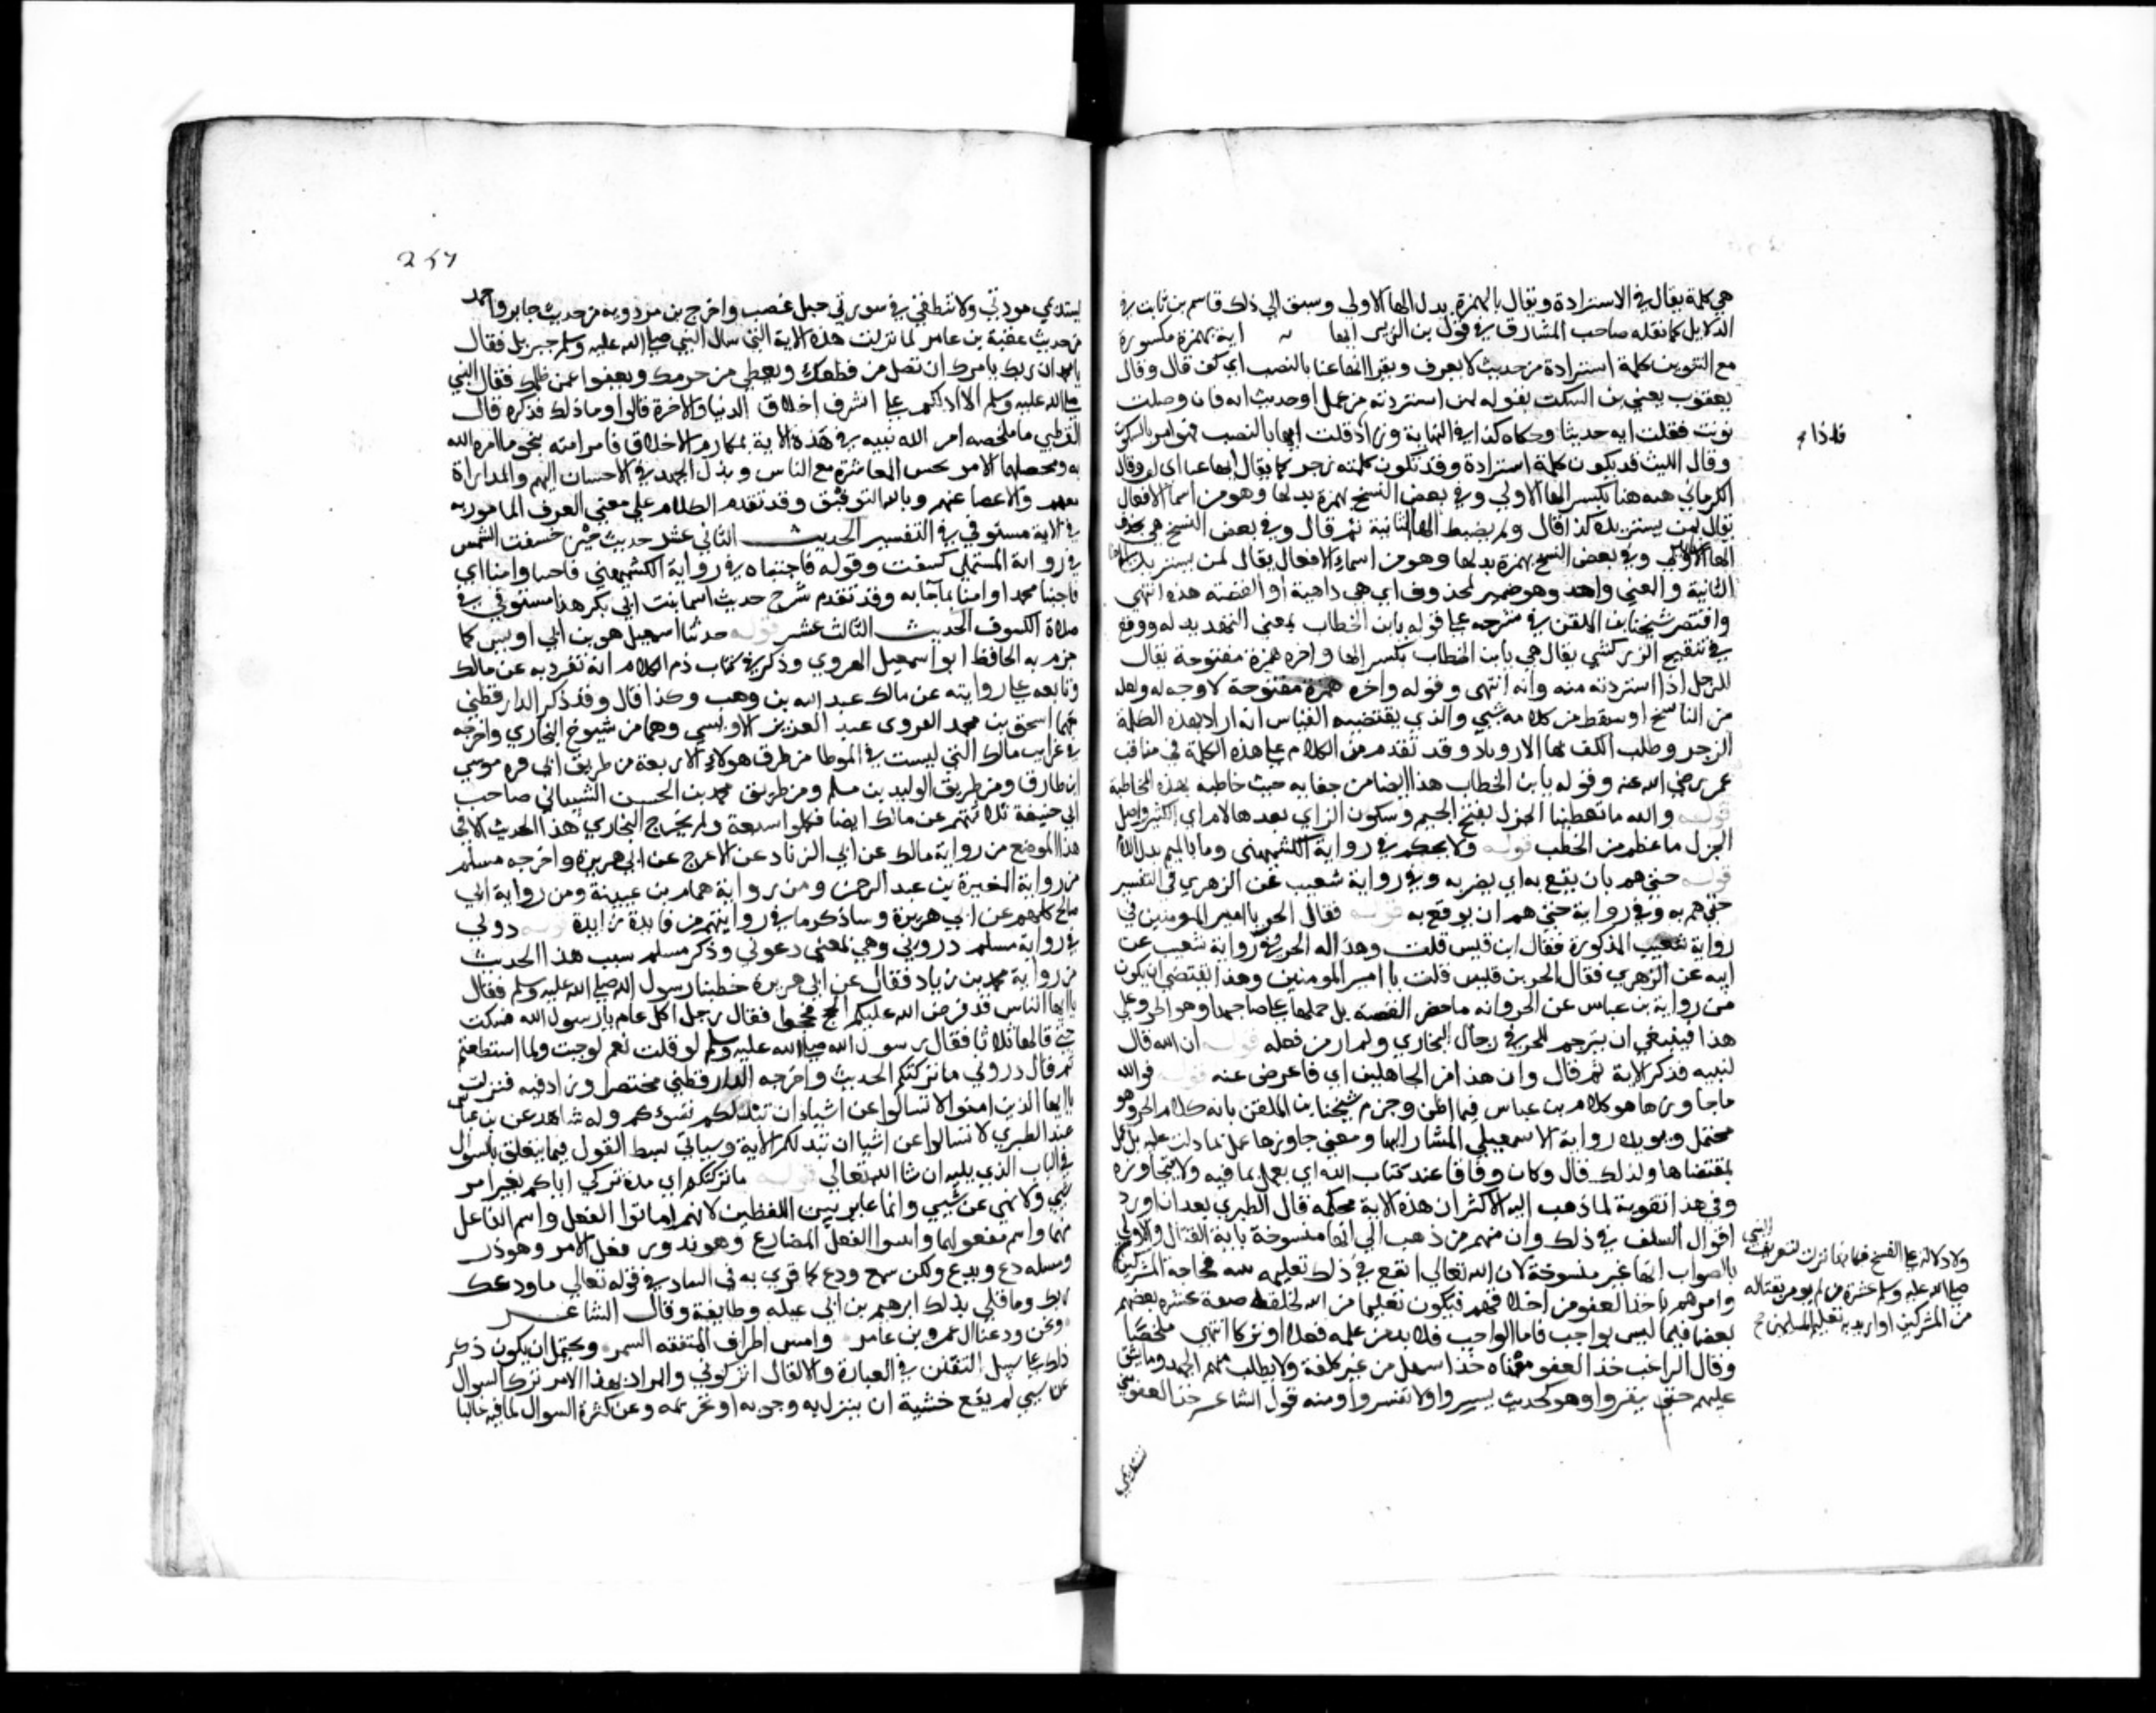 هي كلمة يقال في الاستزادة ويقال بالهمزة بدل الها الاولي وسبق الي ذلك قاسم بن ثابت في
الدلايل كما نقله صاحب المشارق في قول بن الزبير ايها اية بهمزة مكسورة
مع التنوين كلمة استزادة من حديث لا يعرف ويقرا ايها عنا بالنصب اي كف قال وقال
يعقوب يعني بن السكت يقوله لمن استزدته من عمل او حديث ايه فان وصلت
نونت فقلت ايه حديثا وحكاه كذا في النهاية وزاد قلت ايها بالنصب فهو امر بالسكوت
فاذا
وقال الليث قد يكون كلمة استزادة وقد تكون كلمة زجر كما يقال ايها عنا اي كف وقال
الكرماني هيه هنا بكسر الها الاولي وفي بعض النسخ بهمزة بدلها وهو من اسما الافعال
يقال لمن يستزيده كذا قال ولم يضبط الها الثانية ثم قال وفي بعض النسخ هي بحذف
الها الاولي وفي بعض النسخ بهمزة بدلها وهو من اسماء الافعال يقال لمن يستزيد
الثانية والمعني واحد وهو ضمير لمحذوف اي هي داهية او القصة هذه انتهي
واقتصر شيخنا بن الملقن في شرحه علي قوله يا بن الخطاب بمعني التهديد له ووقع
في تنقيح الزركشي يقال هي يا بن الخطاب بكسر الها واخره همزة مفتوحة يقال
للرجل اذا استزدته منه وانه انتهي وقوله واخره همزة مفتوحة لا وجه له ولعله
من الناسخ او سقط من كلامه شي والذي يقتضيه القياس انه اراد بهذه الكلمة
الزجر وطلب الكف لها الازدياد وقد تقدم من الكلام علي هذه الكلمة في مناقب
عمر رضي الله عنه وقوله يا بن الخطاب هذا ايضا من جفايه حيث خاطبه بهذه المخاطبة
قوله والله ما تعطينا الجزل بفتح الجيم وسكون الزاي بعدها لام اي الكثير واصل
الجزل ما عظم من الحطب قوله ولا يحكم في رواية الكشميهني وما بالميم بدل اللام
قوله حتي هم بان يقع به اي يضربه وفي رواية شعيب عن الزهري في التفسير
حتي هم به وفي رواية حتي هم ان يوقع به قوله فقال الحر يا امير المومنين في
رواية شعيب المذكورة فقال ابن قيس قلت وهذا له الحر في رواية شعيب عن
ابيه عن الزهري فقال الحر بن قيس قلت يا امير المومنين وهذا يقتضي ان يكون
من رواية بن عباس عن الحر وانه ما حضر القصة بل حملها علي صاحبها وهو الحر وعلي
هذا فينبغي ان يترجم للحر في رجال البخاري ولم ار من فعله قوله ان الله قال
لنبيه فذكر الاية ثم قال وان هذا من الجاهلين اي فاعرض عنه قوله فوالله
ما جاوزها هو كلام بن عباس فيما اظن وجزم شيخنا بن الملقن بانه كلام الحر وهو
محتمل ويويده رواية الاسمعيلي المشار اليها ومعني جاوزها عمل بما دلت عليه بل عمل
بمقتضاها ولذلك قال وكان وقافا عند كتاب الله اي يعمل بما فيه ولا يتجاوزه
وفي هذا تقوية لما ذهب اليه الاكثر ان هذه الاية محكمة قال الطبري بعد ان اورد
اقوال السلف في ذلك وان منهم من ذهب الي انها منسوخة باية القتال والاولي
بالصواب انها غير منسوخة لان الله تعالي اتبع في ذلك تعليمه نبيه محاجة المشركين
ولا دلالة علي النسخ فكانها نزلت لتعريف النبي
صلي الله عليه وسلم عشرة من لم يومر بقتاله
من المشركين او اريد به تعليم المسلمين
وامرهم باخذ العفو من اخلاقهم فيكون تعليما من الله لخلقه صفة عشرة بعضهم
بعضا فيما ليس بواجب فاما الواجب فلا بد من عمله فعلا او تركا انتهي ملخصا
وقال الراغب خذ العفو معناه خذ ما سهل من غير كلفة ولا يطلب منهم الجهد وما يشق
عليهم حتي ينفروا وهو كحديث يسروا ولا تعسروا ومنه قول الشاعر خذ العفو مني
تستديمي
267
تستديمي مودتي ولا تنطقي في سورتي حين اغضب واخرج بن مردويه من حديث جابر واحمد
من حديث عقبة بن عامر لما نزلت هذه الاية التي سال النبي صلي الله عليه وسلم جبريل فقال
يا محمد ان ربك يامرك ان تصل من قطعك وتعطي من حرمك وتعفوا عمن ظلمك فقال النبي
صلي الله عليه وسلم الا ادلكم علي اشرف اخلاق الدنيا والاخرة قالوا وما ذلك فذكره قال
القرطبي ما ملخصه امر الله نبيه في هذه الاية بمكارم الاخلاق فامر امته بنحو ما امره الله
به ومحصلها الامر بحسن المعاشرة مع الناس وبذل الجهد في الاحسان اليهم والمداراة
معهم والاغضا عنهم وبالله التوفيق وقد تقدم الكلام علي معني العرف المامور به
في الاية مستوفي في التفسير الحديث الثاني عشر حديث حين خسفت الشمس
في رواية المستملي كسفت وقوله فاجبناه في رواية الكشميهني فاجبنا وامنا اي
فاجبنا محمدا وامنا بما جا به وقد تقدم شرح حديث اسما بنت ابي بكر هذا مستوفي في
صلاة الكسوف الحديث الثالث عشر قوله حدثنا اسمعيل هو بن ابي اويس كما
جزم به الحافظ ابو اسمعيل الهروي وذكر في كتاب ذم الكلام انه تفرد به عن مالك
وتابعه علي روايته عن مالك عبد الله بن وهب وكذا قال وقد ذكر الدارقطني
معهما اسحق بن محمد الفروي عبد العزيز الاويسي وهما من شيوخ البخاري واخرجه
في غرايب مالك التي ليست في الموطا من طرق هولاء الاربعة من طريق ابي قره موسي
بن طارق ومن طريق الوليد بن مسلم ومن طريق محمد بن الحسن الشيباني صاحب
ابي حنيفة ثلاثتهم عن مالك ايضا فكملوا سبعة ولم يخرج البخاري هذا الحديث الا في
هذا الموضع من رواية مالك عن ابي الزناد عن الاعرج عن ابي هريرة واخرجه مسلم
من رواية المغيرة بن عبد الرحمن ومن رواية همام بن عيينة ومن رواية ابي
صالح كلهم عن ابي هريرة وساذكر ما في روايتهم من فايدة زايدة قوله دعوني
في رواية مسلم ذروني وهي بمعني دعوني وذكر مسلم سبب هذا الحديث
من رواية محمد بن زياد فقال عن ابي هريرة خطبنا رسول الله صلي الله عليه وسلم فقال
يا ايها الناس قد فرض الله عليكم الحج فحجوا فقال رجل اكل عام يا رسول الله فسكت
حتي قالها ثلاثا فقال رسول الله صلي الله عليه وسلم لو قلت نعم لوجبت ولما استطعتم
ثم قال ذروني ما تركتكم الحديث واخرجه الدارقطني مختصرا وزاد فيه فنزلت
يا ايها الذين امنوا لا تسالوا عن اشياء ان تبد لكم تسؤكم وله شاهد عن بن عباس
عند الطبري لا تسالوا عن اشيا ان تبد لكم الاية وسياتي بسط القول فيما يتعلق بالسوال
في الباب الذي يليه ان شا الله تعالي قوله ما تركتكم اي مدة تركي اياكم بغير امر
بشي ولا نهي عن شي وانما غاير بين اللفظين لانهم اماتوا الفعل واسم الفاعل
منهما واسم مفعولهما واثبتوا الفعل المضارع وهو يذر وفعل الامر وهو ذر
ومثله دع ويدع ولكن سمع ودع كما قري به في الشاذ في قوله تعالي ما ودعك
ربك وما قلي بذلك ابرهيم بن ابي عبلة وطايفة وقال الشاعر
ونحن ودعنا ال عمرو بن عامر وامس اطراف المثقفة السمر ويحتمل ان يكون ذكر
ذلك علي سبيل التفنن في العبارة والا لقال اتركوني والمراد بهذا الامر ترك السوال
عن شي لم يقع خشية ان ينزل به وجوبه او تحريمه وعن كثرة السوال لما فيه غالبا